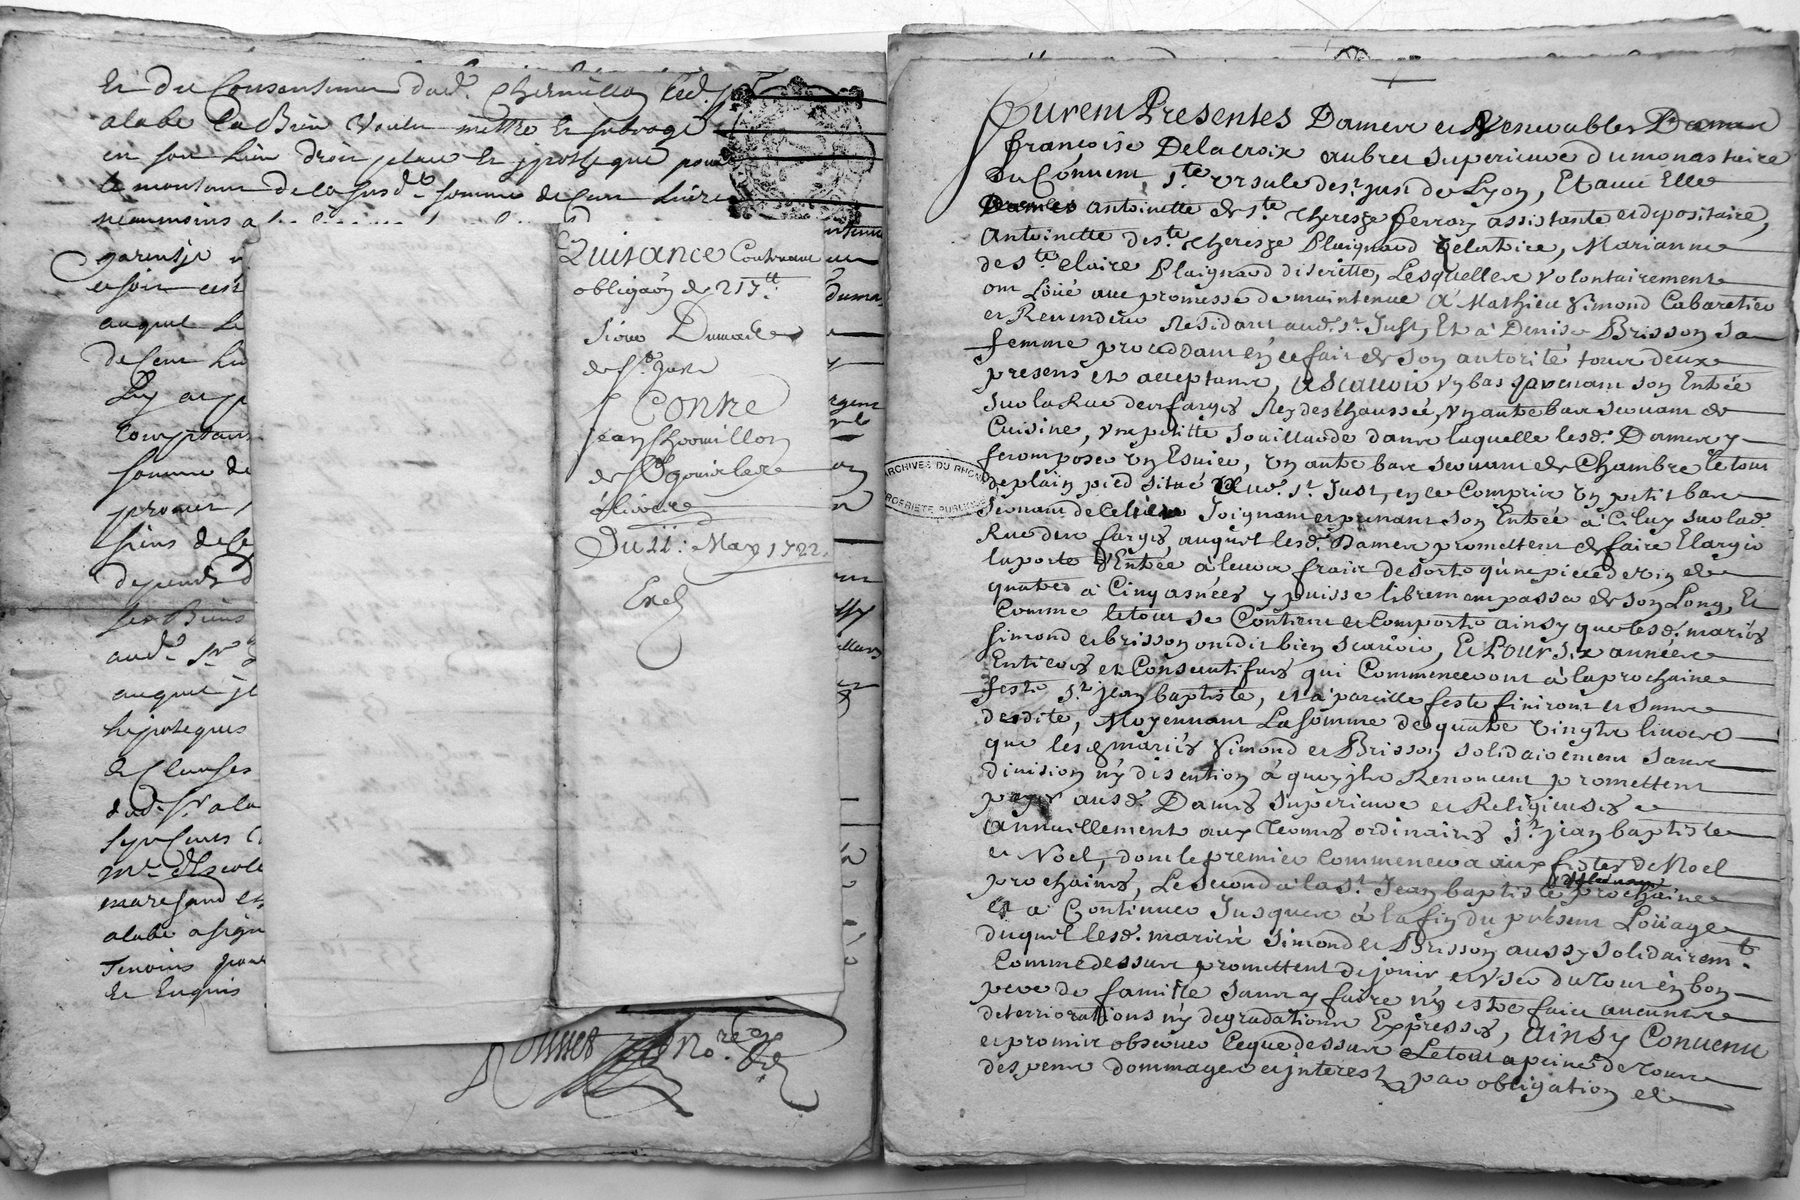 Et du Consentement dud. Chermillon led. sr
alabé La Bien voulu mettre Et subrogé
en son Lieu droit place Et ypotheque pour
le montant de la susde. somme de Cent Livres
neanmoins a
garentje
auquel Le
de Cent Liv
Comptant
somme de
promet
siens de Ce
depends d
ses Biens
aude. Sr.
auquel jl
hipoteques
& Clauses
dud. sr. ala
Mre. d'Escole
marchand et
alabé a signé
Temoins pour
Et Enquis
nore.
Quitance Contenant
obliga͠on de 217tt.
Sieur Dumas
de St. Just
Contre
jean Chermillon
de St. Genis les
ôlieres
Du 11: May 1722.
Exd.
Furent Presentes Dames et Venerables Dames
françoise Delacroix aubret superieure du monastaire
du Convent Ste. Ursule de St. just de Lyon, Et avec Elle
Dames antoinette de Ste. Therese ferroy assistante et depositaire,
Antoinette de Ste. Therese Plaignard Zelatrice, Marianne
de Ste. Claire Plaignard discrette, Lesquelles Volontairement
ont Loüé avec promesse de maintenue A Mathieu Simond Cabaretier
et Revendeur Residant aud. St. Just, Et à Denise Brisson sa
femme proceddant én ce fait de son autorité tous deux
presens et acceptants, A Scavoir Un bas prenant son Entrée
sur la Rue des farges Rez des Chaussée, Un autre bas servant de
Cuisine, Une petitte Souillarde dans laquelle lesd. Dames y
feront poser Un Esvier, Un autre bas servant de Chambre le tout
de plain pied situé Aud. St. Just, en ce Compris Un petit bas
servant de Celier Joignant et prenant son Entrée à Celuy sur lad.
Rue des farges, auquel lesd. Dames promettent de faire Elargir
la porte d'Entrée à leurs frais de sorte qu'une piece de vin de
quatre à Cinq asnées y puisse librement passer de son Long, Et
Comme le tout se Contient et Comporte ainsy que lesd. mariés
Simond et brisson ont dit bien scavoir, Et Pour six années
Entieres et Consecutifves qui Commenceront à la prochaine
feste St. jean baptiste, et à pareille feste finiront et sans
desdite, Moyennant La somme de quatre vingts livres
que lesd mariés Simond et Brisson solidairement sans
division n'y discution à quoy jls Renoncent promettent
payer ausd. Dames Superieure et Religieuses
annuellement aux Termes ordinaires St. jean baptiste
et Noel, dont le premier Commencera aux festes de Noel
prochaines, Le Second à la St. Jean baptiste prochaine
et à Continuer Jusques à la fin du présent Loüage
duquel lesd. mariés Simond et Brisson aussy solidairemt.
Comme dessus promettent de jouir et User du Tout én bon
pere de famille sans y faire n'y estre fait aucunes
deterriorations n'y degradations Expresses, Ainsy Convenu
et promis observer Ceque dessus Le tout a peine de Tous
despens dommages et jnterest par obligation de
ARCHIVES DU RHONE
PROPRIETE PUBLIQUE